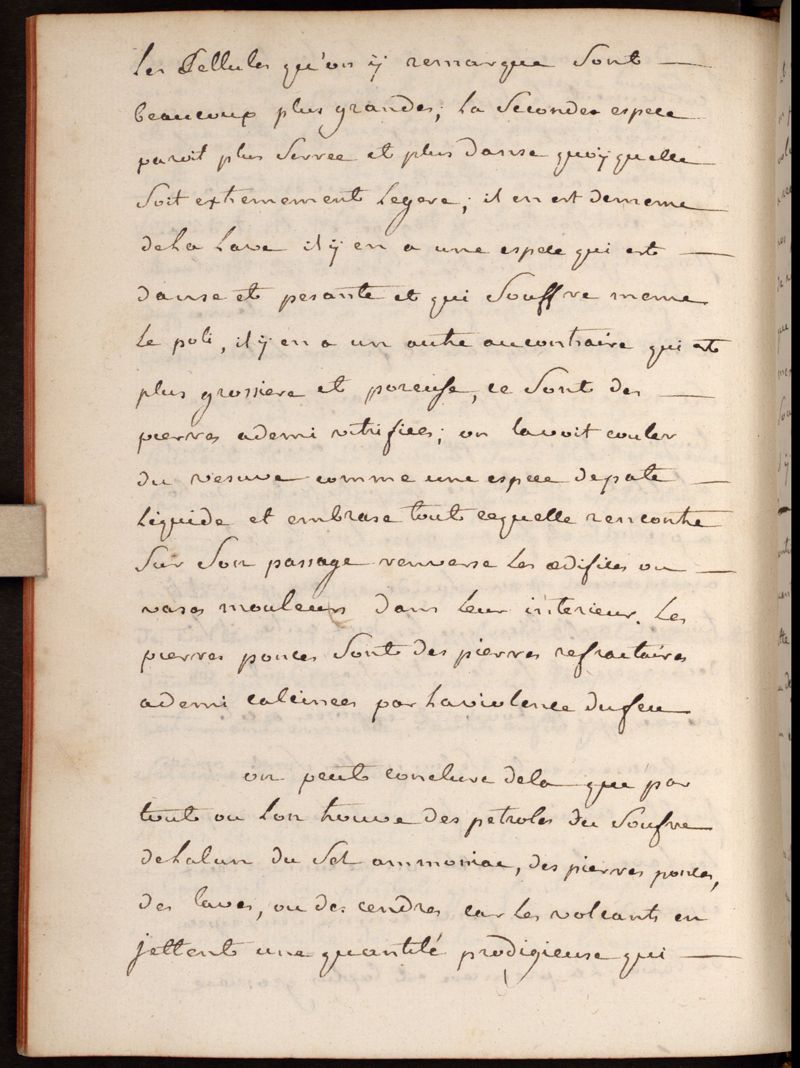 les Cellules qu'on ÿ remarque sont —
beaucoup plus grandes; la seconde espece
paroit plus serree et plus danse quoÿ quelle
soit extremement legere; il en est dememe
dela lave il ÿ en a une espece qui est —
danse et pesante et qui souffre meme
le poli, il ÿ en a un autre aucontraire qui est
plus grossiere et poreuse, ce sont des —
pierres ademi vitrifiées; on lavoit couler
du vesuve comme une espece depate —
liquide et embrase tout cequelle rencontre
sur son passage renverse les ædifices ou —
vases mouleurs dans leur interieur. les
pierres ponces sont des pierres refractaires
ademi calcinees par laviolence dufeu
on peut conclure dela que par
tout ou lon trouve des petroles du soufre
delalun du sel ammoniac, des pierres ponces,
des laves, ou des cendres car les volcants en
jettent une quantité prodigieuse qui —